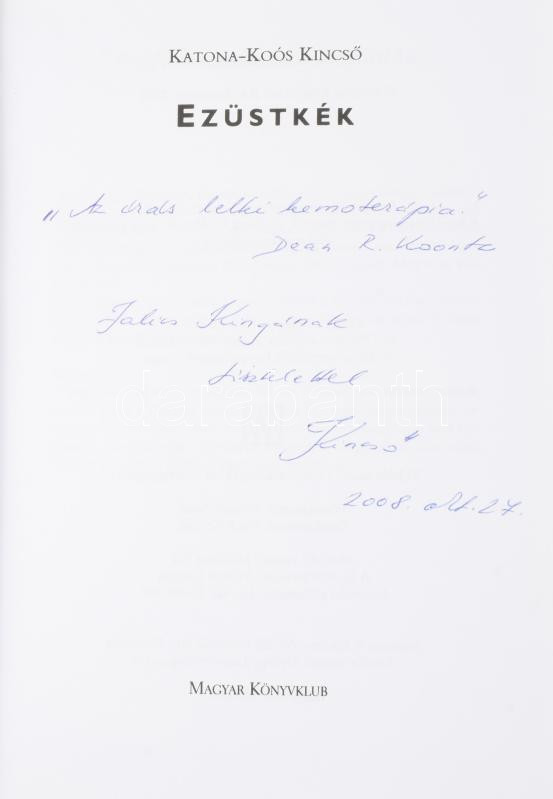 KATONA-KOÓS KINCSŐ
EZÜSTKÉK
„Az írás lelki kemoterápia."
Dean R. Koontz
Jalics Kingának
tisztelettel
Kincső
2008. okt. 27.
darabanth
MAGYAR KÖNYVKLUB